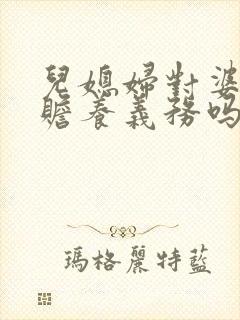 兒媳婦對婆
贍養義務吗
瑪格麗特藍